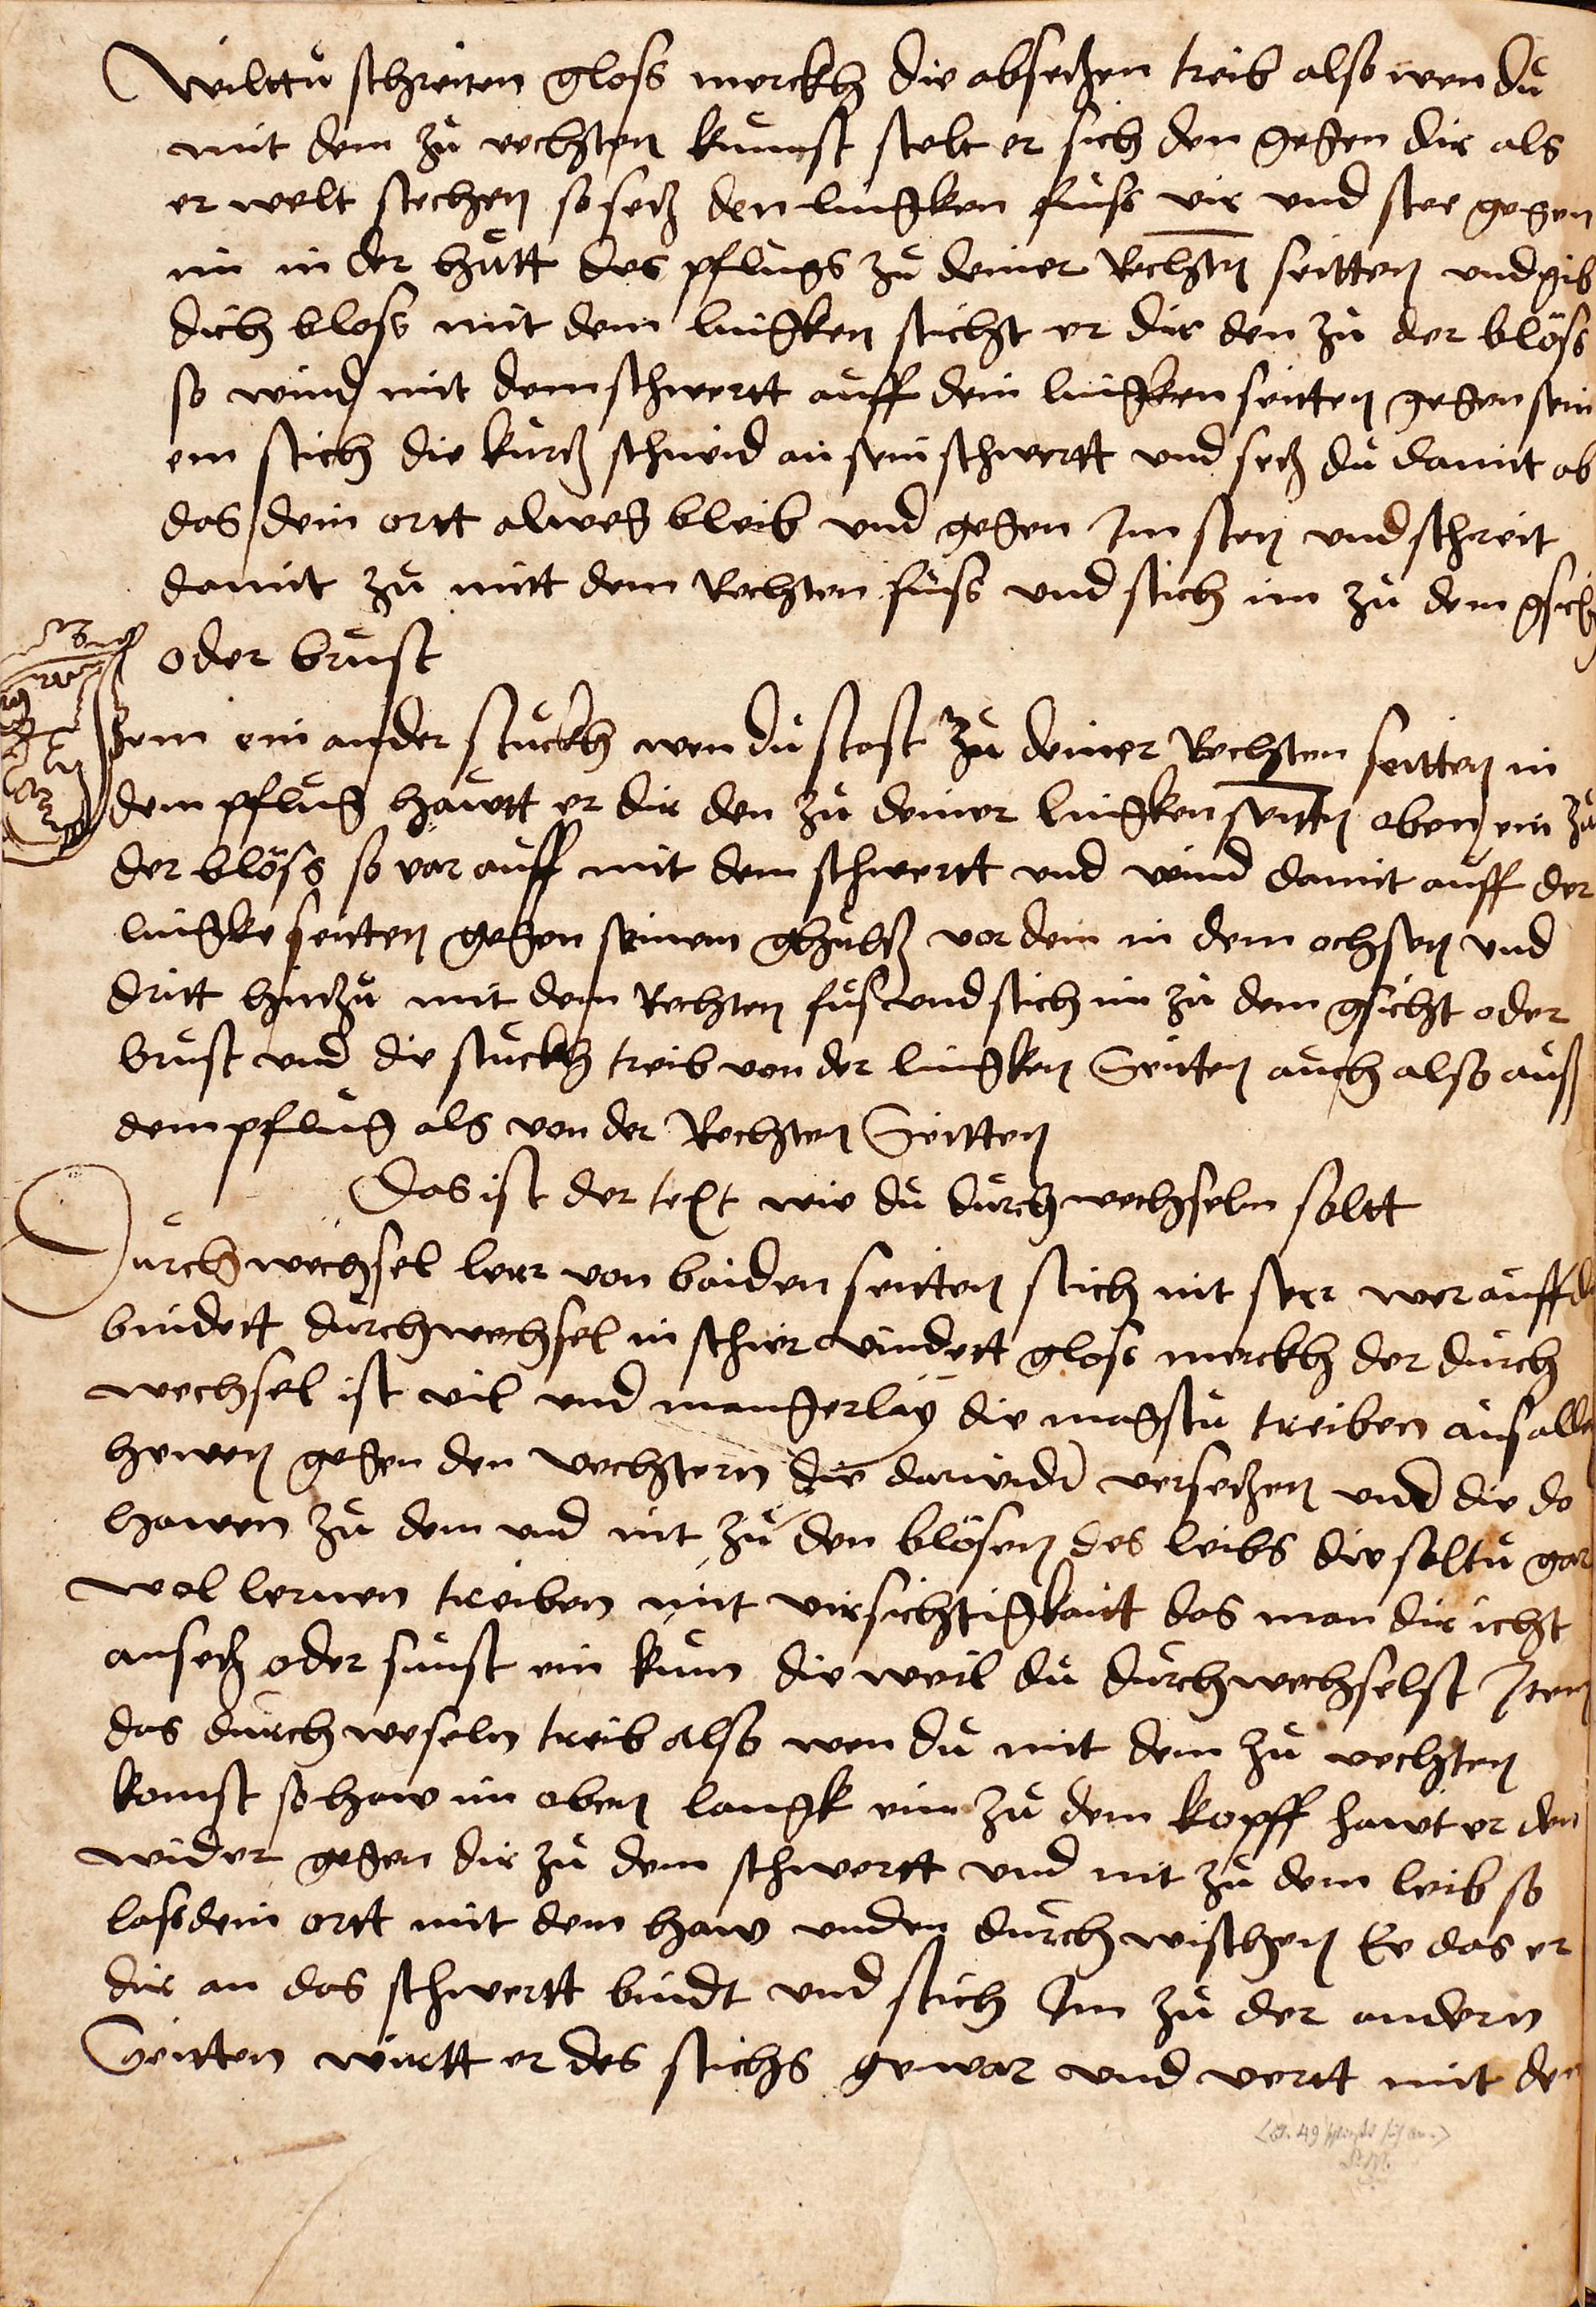 Wilttu schreiten gloss merckh die abseczen treib also wen du
mit dem zu vechten kumst stelt er sich den gegen dir als
er welt stechen so secz den lingken fuss vir vnd stee gegen
im in der hutt des pflugs zu deiner Rechsten seitten vnd gib
dich bloss mit dem lingken sticht er dir den zu der blöss
so wind mit dem schwertt auff dein lingken seitten gegen sein
em stich die kurcz schneid an sein schwertt vnd secz du damit ab
das dein ortt alweg bleib vnd gegen Im sten vnd schreit
damit zu mitt dem Rechten fuss vnd stich im zu dem gsich
oder brust
Item ein ander stuckh wen du stost zu deiner Rechsten seitten in
dem pflug hawtt er dir den zu deiner lingken seitten oben ein zu
der blöss so var auff mit dem schwertt vnd wind damit auff der
lingke seitten gegen seinem ghulcz vor dein in dem ochsen vnd
dritt hinzu mit dem Rechten fuss vnd stich im zu dem gsicht oder
brust vnd die stuckh treib von der lingken Seitten auch also auß
dem pflug als von der Rechten Seitten
Das ist der text wie du durchwechseln soltt
Durchwechsel lerr von baiden seitten stich mit serr wer auff d
bindett durchwechsel in schier vindett gloss merckh der durch
wechsel ist vil vnd mangerlay die magstu treiben aus alle
hewen gegen den vechtern die da verseczen vnd die do
hawen zu dem vnd nit zu den blösen des leibs die soltu gar
wol lernen treiben mit virsichtigkaitt das man dir icht
ansecz oder sunst ein kum die weil du durchwechselst Item
das durch weseln treib also wen du mit dem zu vechten
komst so haw im oben langk ein zu dem kopff hawt er den
wider gegen dir zu dem schwertt vnd nit zu dem leib so
lass dein ortt mit dem haw vnden durch wischen Ee das er
dir an das schwertt bindt vnd stich Im zu der andern
Seitten wirtt er des stichs gewar vnd vertt mit de